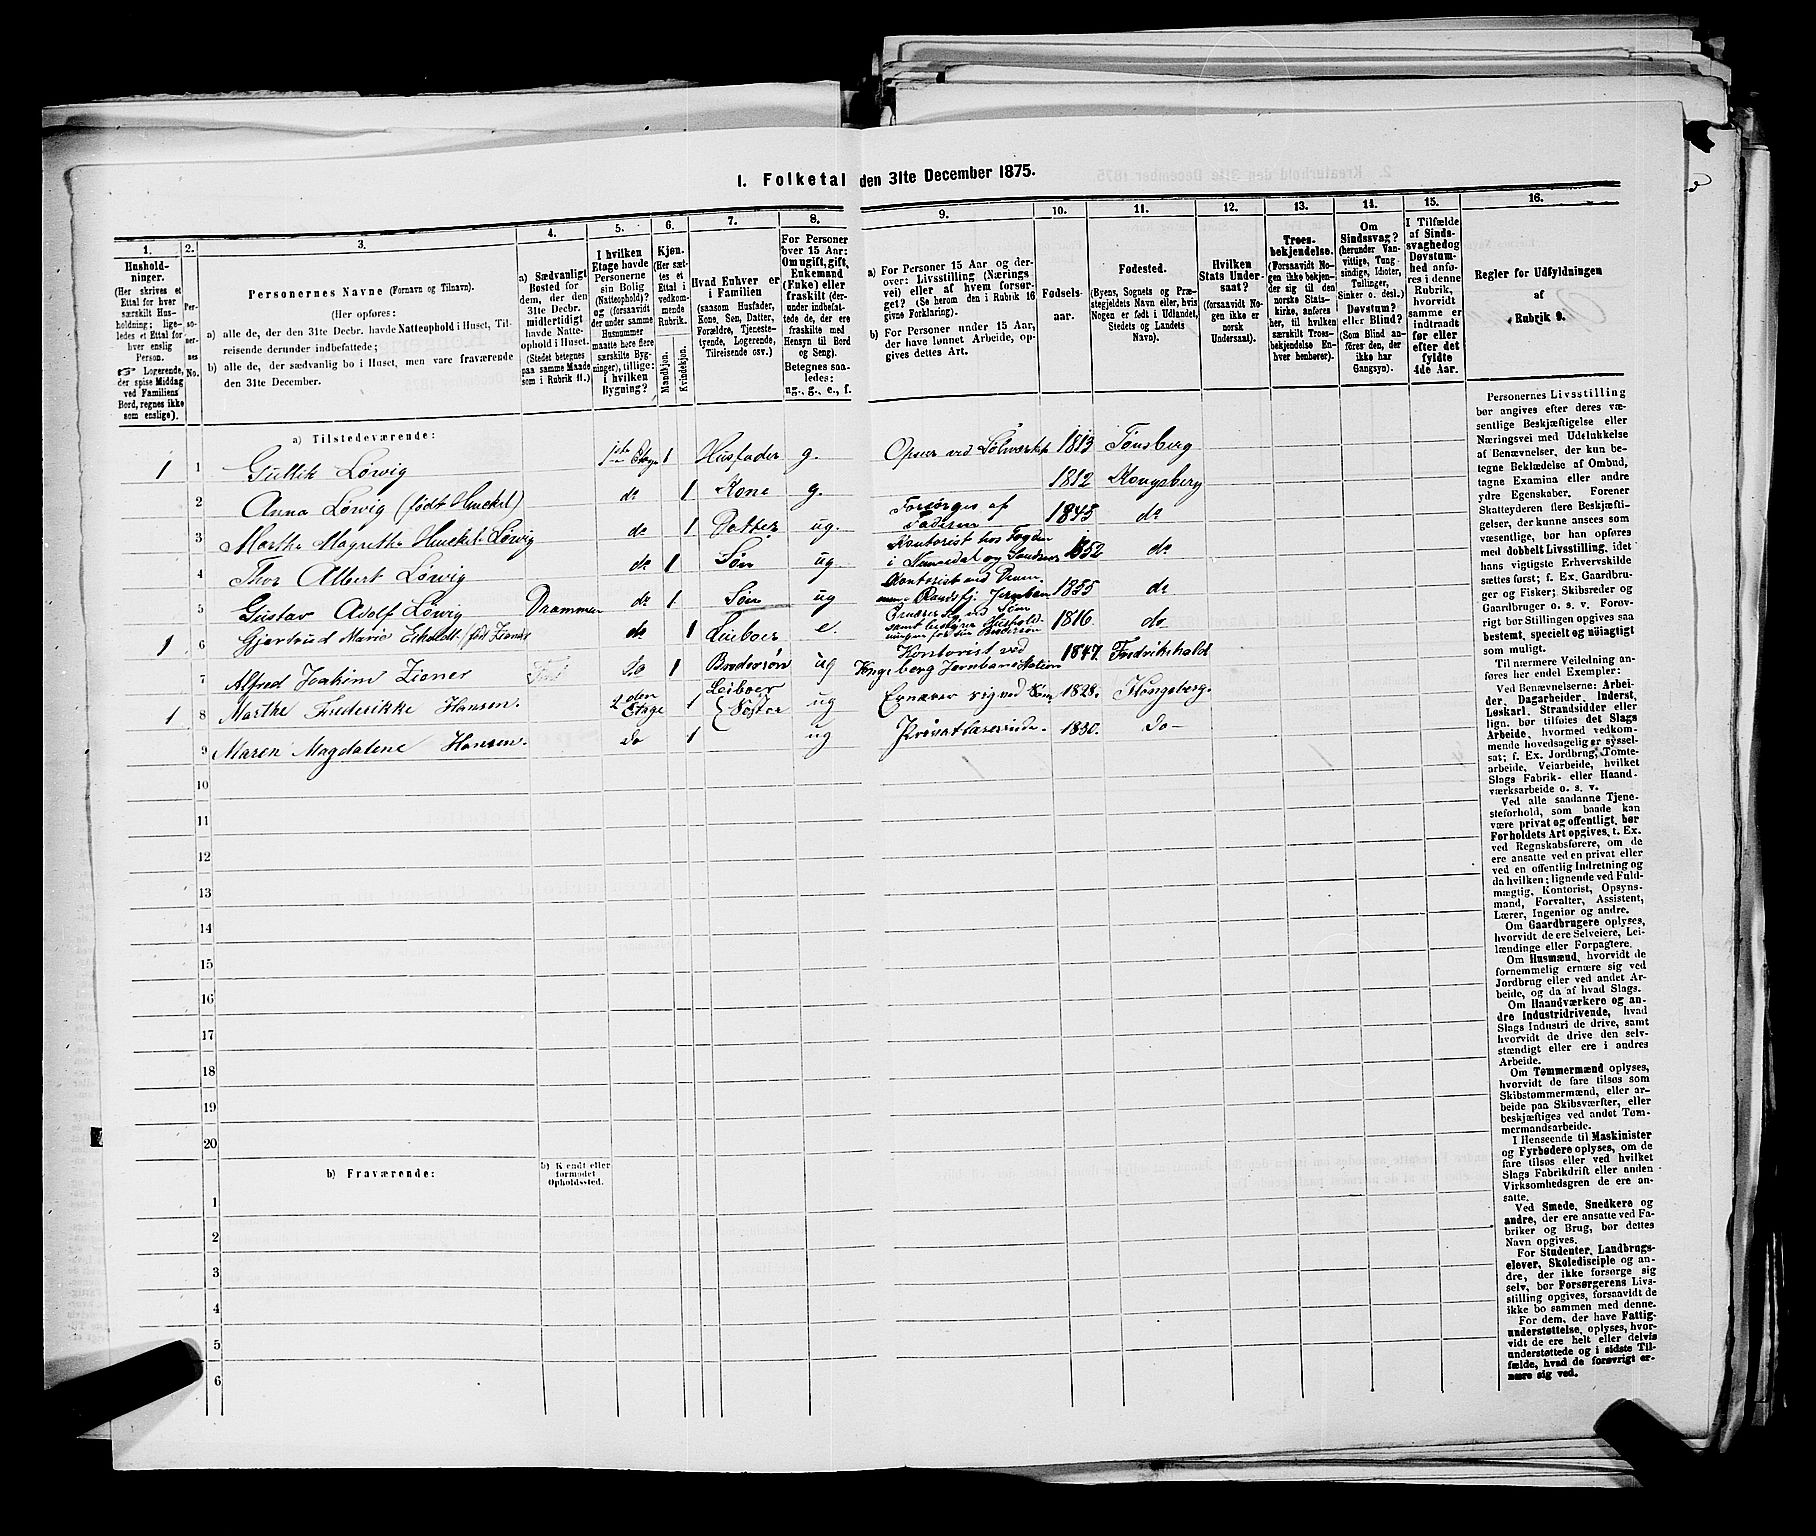 1. Folketal den 31te December 1875.
1. 2. 3. 4. 5. 6. 7. 8. 9. 10. 11. 12. 13. 14. 15. 16.
Hushold-
ninger.
(Her skrives et
Ettal for hver
særskilt Hus-
holdning; lige-
ledes et Ettal for
hver enslig
Person.
☞ Logerende,
der spise Middag
ved Familiens
Bord, regnes ikke
som enslige).
Per-
so-
ner-
nes
No.
Personernes Navne (Fornavn og Tilnavn).
(Her opføres:
a) alle de, der den 31te Decbr. havde Natteophold i Huset, Til-
reisende derunder indbefattede;
b) alle de, der sædvanlig bo i Huset, men vare fraværende
den 31te December.
a) Sædvanligt
Bosted for
dem, der den
31te Decbr.
midlertidigt
havde Natte-
ophold i Huset.
(Stedet betegnes
paa samme Maade
som i Rubrik 11.)
I hvilken
Etage havde
Personerne
sin Bolig
(Natteophold)?
og (forsaavidt
der under samme
Husnummer
maatte høre flere
særskilte Byg-
ninger), tillige:
i hvilken
Bygning?
Kjøn.
(Her sæt-
tes et
Ettal i
vedkom-
mende
Rubrik.
Mandkjøn.
Kvindekjøn.
Hvad Enhver er
i Familien
(saasom Husfader,
Kone, Søn, Datter,
Forældre, Tjeneste-
tyende, Logerende,
Tilreisende osv.)
For Personer
over 15 Aar:
Om ugift, gift,
Enkemand
(Enke) eller
fraskilt (der-
under indbefat-
tede de, der ere
fraskilte med
Hensyn til Bord
og Seng).
Betegnes saa-
ledes:
ug., g., e., f.
a) For Personer 15 Aar og der-
over: Livsstilling (Nærings
vei) eller af hvem forsør-
get? (Se herom den i Rubrik 16
givne Forklaring).
b) For Personer under 15 Aar,
der have lønnet Arbeide, op-
gives dettes Art.
Fødsels-
aar.
Fødested.
(Byens, Sognets og Præ-
stegjeldets Navn eller, hvis
Nogen er født i Udlandet,
Stedets og Landets
Navn).
Hvilken
Stats Under-
saat?
(forsaavidt No-
gen ikke er
norsk
Undersaat).
Troes-
bekjendelse.
(Forsaavidt No-
gen ikke bekjen-
der sig til den
norske Stats-
kirke, anføres
her, til hvilken
særskilt Troes-
bekjendelse En-
hver henhører).
Om
Sindssvag?
(herunder Van-
vittige, Tung-
sindige, Idioter,
Tullinger,
Sinker o. desl.)
Døvstum?
eller Blind?
(Som Blind an-
føres den, der
ikke har
Gangsyn).
I Tilfælde
af Sinds-
svaghed og
Døvstum-
hed anfø-
res i denne
Rubrik,
hvorvidt
samme er
indtraadt
før eller
efter det
fyldte
4de Aar.
Regler for Udfyldningen
af
Rubrik 9.
a) Tilstedeværende:
1 1 Gullik Løvig 1ste Etage 1 Husfader g. Opsyn ved Sølvværket 1813 Tønsberg
2 Anna Løvig (født Henckel) do 1 Kone g. 1812 Kongsberg
3 Marthe Magrethe Henckel Løvig do 1 Datter ug. Forsørges af Faderen 1845 do
4 Thor Albert Løvig do 1 Søn ug. Kontorist hos Fogden i Numedal og Sandsvær 1852 do
5 Gustav Adolf Løvig Drammen do 1 Søn ug Kontorist ved Drammen Randsfj. Jernban 1855 do
1 6 Gjertrud Marie (fød Ziener do 1 Leieboer e. Ernærer sig ved Søm samt bestyrer Husholdningen for sin Brodersøn 1816. do
7 Alfred Joakim Ziener do 1 Brodersøn ug Kontorist ved Kongsberg Jernbanestation 1847. Fredrikshald
1 8 Marthe Frederikke Hansen. 2den Etage 1 Leiboer ug Ernærer sig ved Søm 1828. Kongsberg
9 Maren Magdalene Hansen. do 1 Søster ug Privatlærerinde. 1830. do
10
11
12
13
14
15
16
17
18
19
20
b) Fraværende:
b) Kendt eller
formodet
Opholdssted.
1
2
3
4
5
6
Personernes Livsstilling
bør angives efter deres væ-
sentlige Beskjæftigelse eller
Næringsvei med Udelukkelse
af Benævnelser, der kun be-
tegne Beklædelse af Ombud,
tagne Examina eller andre
ydre Egenskaber. Forener
Skatteyderen flere Beskjæfti-
gelser, der kunne ansees som
væsentlige, bør han opføres
med dobbelt Livsstilling, idet
hans vigtigste Erhvervskilde
sættes først; f. Ex. Gaardbru-
ger og Fisker; Skibsreder og
Gaardbruger o. s. v. Forøv-
rigt bør Stillingen opgives saa
bestemt, specielt og nøiagtigt
som muligt.
Til nærmere Veiledning an-
føres her endel Exempler:
Ved Benævnelserne: Arbei-
der, Dagarbeider, Inderst,
Løskarl, Strandsidder eller
lign. bør tilføies det Slags
Arbeide, hvormed vedkom-
mende hovedsagelig er syssel-
sat; f. Ex. Jordbrug, Tomte-
arbeide, Veiarbeide, hvilket
Slags Fabrik- eller Haand-
værksarbeide o. s. v.
Ved alle saadanne Tjene-
steforhold, som baade kan
være privat og offentligt, bør
Forholdets Art opgives, t. Ex.
ved Regnskabsførere, om de
ere ansatte ved en privat eller
ved en offentlig Indretning og
da hvilken; lignende ved Fuld-
mægtig, Kontorist, Opsyns-
mand, Forvalter, Assistent,
Lærer, Ingeniør og andre.
Om Gaardbrugere oplyses,
hvorvidt de ere Selveiere, Lei-
lændinge eller Forpagtere.
Om Husmænd, hvorvidt de
fornemmelig ernære sig ved
Jordbrug eller ved andet Ar-
beide, og da af hvad Slags.
Om Haandværkere og an-
dre Industridrivende, hvad
Slags Industri de drive, samt
hvorvidt de drive den selv-
stændigt eller ere i andres
Arbeide.
Om Tømmermænd oplyses,
hvorvidt de fare tilsøs som
Skibstømmermænd, eller ar-
beide paa Skibsværfter, eller
beskjæftiges ved andet Tøm-
mermandsarbeide.
I Henseende til Maskinister
og Fyrbødere oplyses, om de
fare tilsøs eller ved hvilket
Slags Fabrikdrift eller anden
Virksomhedsgren de ere an-
satte.
Ved Smede, Snedkere og
andre, der ere ansatte ved Fa-
briker og Brug, bør dettes
Navn opgives.
For Studenter, Landbrugs-
elever, Skoledisciple og an-
dre, der ikke forsørge sig
selv, bør Forsørgerens Livs-
stilling opgives, forsaavidt de
ikke bo sammen med denne.
For dem, der have Fattig-
understøttelse, oplyses, hvor-
vidt de ere helt eller delvis
understøttede og i sidste Til-
fælde, hvad de forøvrigt er-
nære sig ved.